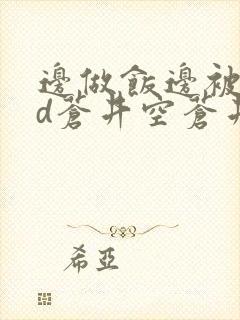 邊做飯邊被
d蒼井空蒼井
希亞